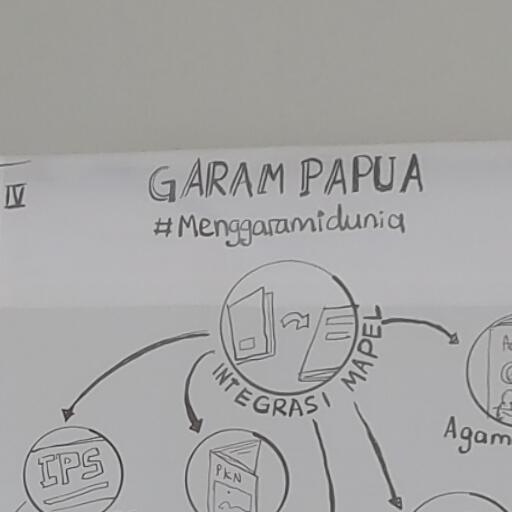 IV
GARAM PAPUA
#Menggaramidunia
INTEGRASI MAPEL
IPS
PKN
Agam